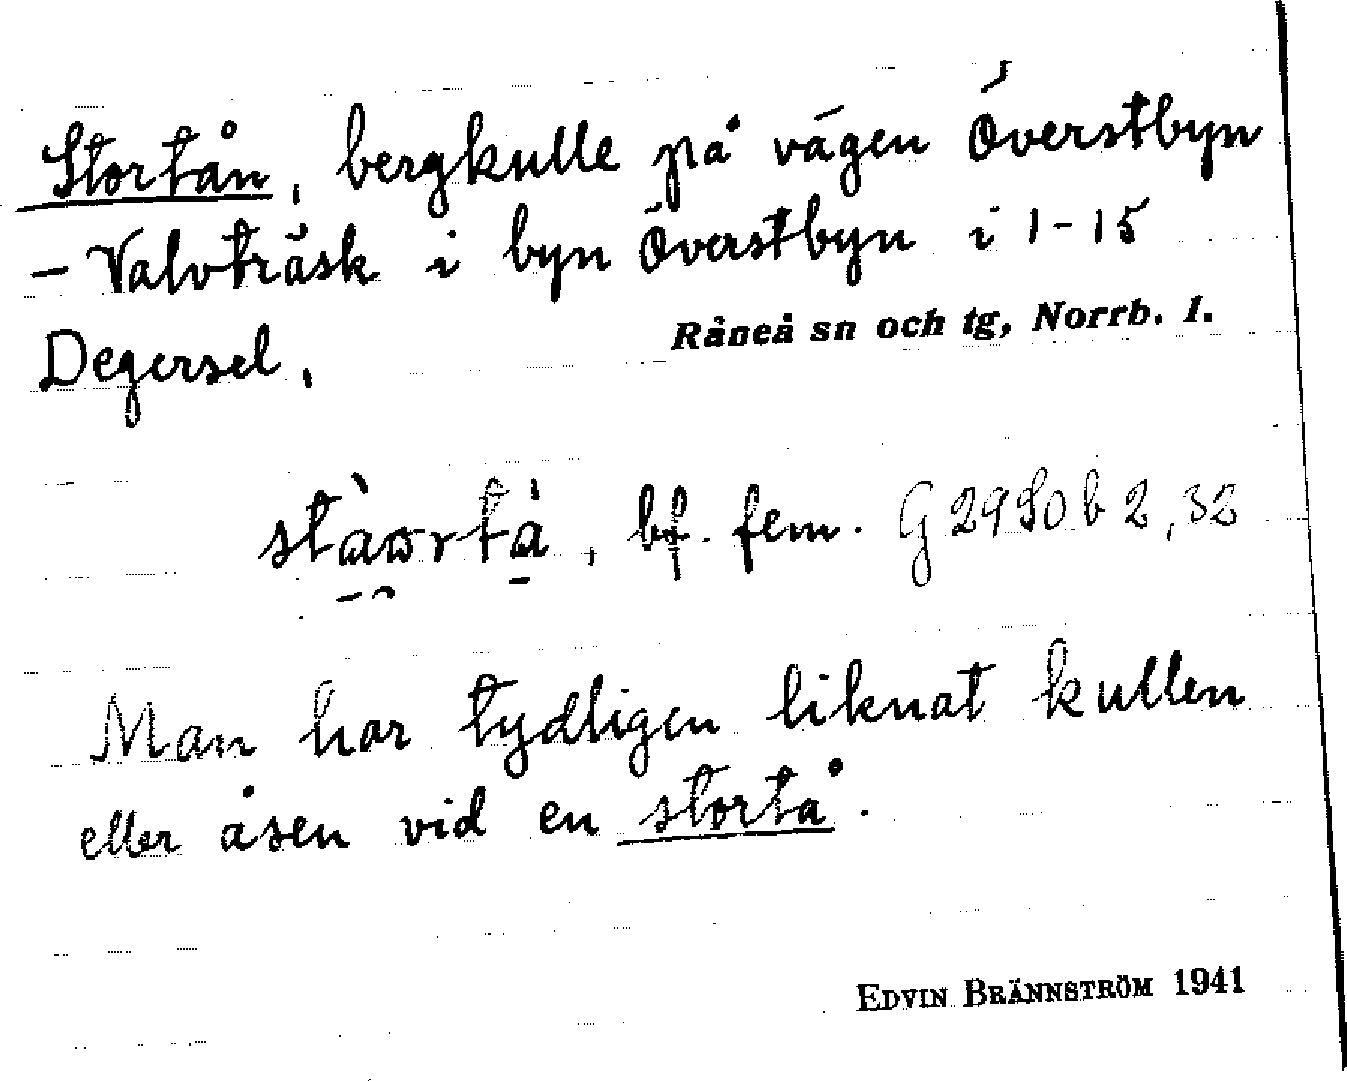 Stortån, bergkulle på vägen Överstbyn
– Valvträsk i byn Överstbyn i 1-15
Degersel,
Råneå sn och tg, Norrb. l.
bf. fem.
Man har tydligen liknat kullen
eller åsen vid en stortå.
EDVIN BRÄNNSTRÖM 1941